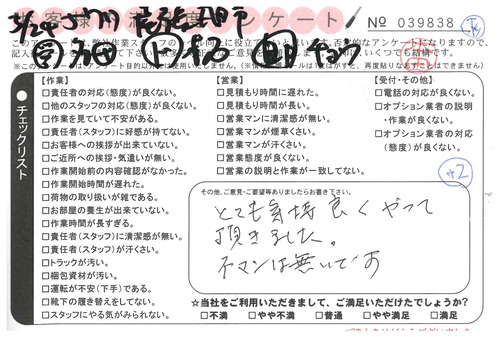 お客様満足度アンケート No 039838
チェックリスト
【作業】
□責任者の対応(態度)が良くない。
□他のスタッフの対応(態度)が良くない。
□作業を見ていて不安がある。
□責任者(スタッフ)に好感が持てない。
□お客様への挨拶が出来ていない。
□ご近所への挨拶・気遣いが無い。
□作業開始前の内容確認がなかった。
□作業開始時間が遅れた。
□荷物の取り扱いが雑である。
□お部屋の養生が出来ていない。
□作業時間が長すぎる。
□責任者(スタッフ)に清潔感が無い。
□責任者(スタッフ)が汗くさい。
□トラックが汚い。
□梱包資材が汚い。
□運転が不安(下手)である。
□靴下の履き替えをしてない。
□スタッフにやる気がみられない。
【営業】
□見積もり時間に遅れた。
□見積もり時間が長い。
□営業マンに清潔感が無い。
□営業マンが煙草くさい。
□営業マンが汗くさい。
□営業態度が良くない。
□営業の説明と作業が一致してない。
【受付・その他】
□電話の対応が良くない。
□オプション業者の説明
・作業が良くない。
□オプション業者の対応
(態度)が良くない。
+2
その他、ご意見・ご要望等ありましたらお書き下さい。
とても気持良くやって
頂きました。
不マンは無いです
☆当社をご利用いただきまして、ご満足いただけたでしょうか?
□不満 □やや不満 □普通 □やや満足 □満足